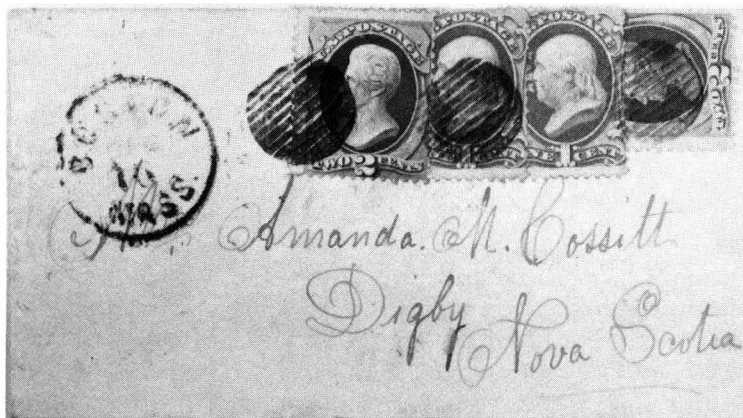 BOSTON
MASS.
U.S. POSTAGE
TWO 2 CENTS
POSTAGE
POSTAGE
ONE 1 CENT
TWO CENTS
Amanda. M. Cossitt
Digby
Nova Scotia